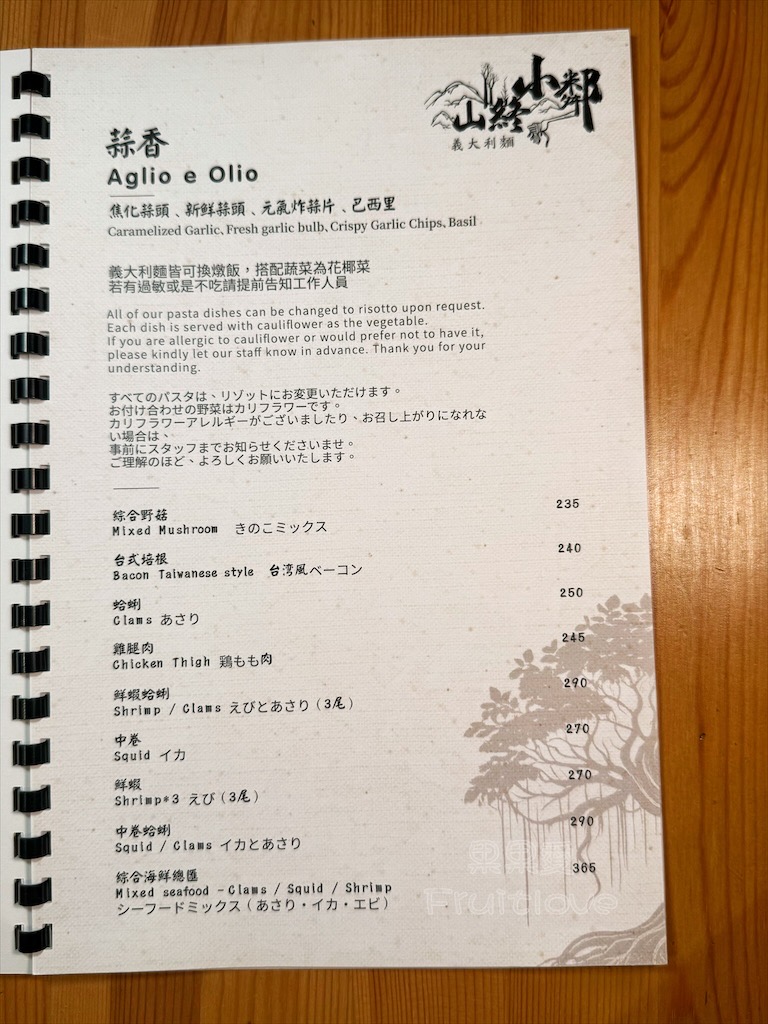 小鄰
山終
義大利麵
蒜香
Aglio e Olio
焦化蒜頭、新鮮蒜頭、元氣炸蒜片、巴西里
Caramelized Garlic、Fresh garlic bulb、Crispy Garlic Chips、Basil
義大利麵皆可換燉飯，搭配蔬菜為花椰菜
若有過敏或是不吃請提前告知工作人員
All of our pasta dishes can be changed to risotto upon request.
Each dish is served with cauliflower as the vegetable.
If you are allergic to cauliflower or would prefer not to have it,
please kindly let our staff know in advance. Thank you for your
understanding.
すべてのパスタは、リゾットにお変更いただけます。
お付け合わせの野菜はカリフラワーです。
カリフラワーアレルギーがございましたり、お召し上がりになれな
い場合は、
事前にスタッフまでお知らせくださいませ。
ご理解のほど、よろしくお願いいたします。
綜合野菇 235
Mixed Mushroom きのこミックス
台式培根 240
Bacon Taiwanese style 台湾風ベーコン
蛤蜊 250
Clams あさり
雞腿肉 245
Chicken Thigh 鶏もも肉
鮮蝦蛤蜊 290
Shrimp / Clams えびとあさり（3尾）
中卷 270
Squid イカ
鮮蝦 270
Shrimp*3 えび（3尾）
中卷蛤蜊 290
Squid / Clams イカとあさり
綜合海鮮總匯 365
Mixed seafood - Clams / Squid / Shrimp
シーフードミックス（あさり・イカ・エビ）
Fruitlove